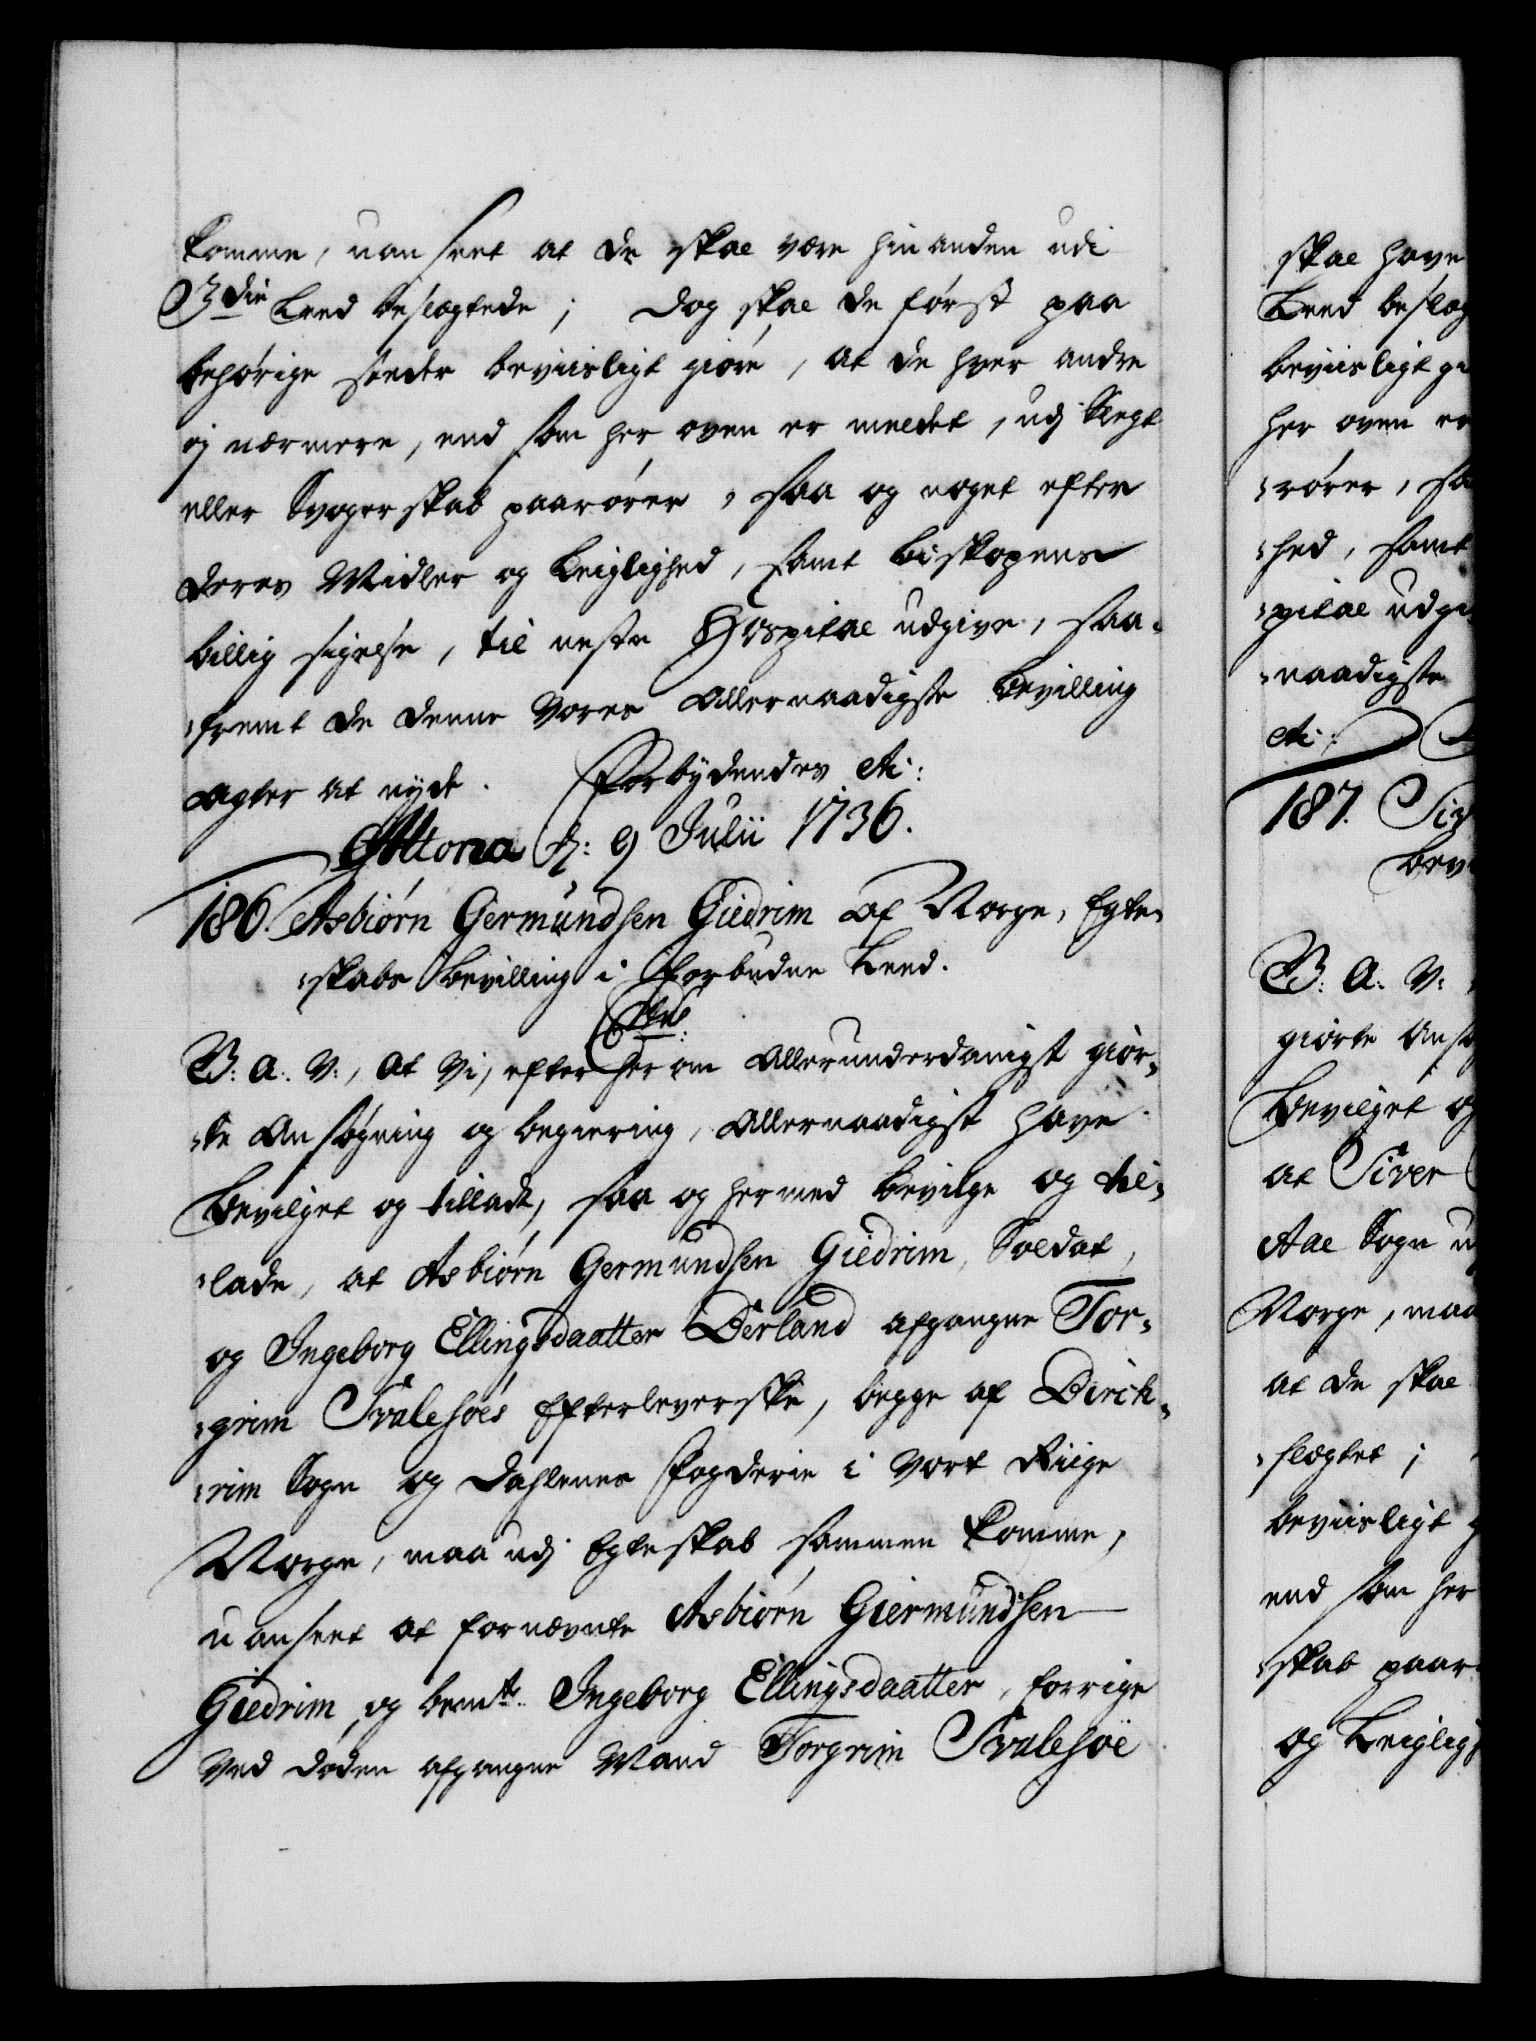 komme, uanseet at de skal være hinanden udi
3die Leed beslægtede; Dog skal de først paa
behørige steder beviisligt giøre, at de hver andre
ej nærmere, end som her oven er meldet, udj Slegt
eller Svogerskab paarører, saa og noget efter
deres Midler og Leiglighed, samt Biskopens
billig sigelse, til neste Hospital udgive, saa-
-fremt de denne Vores Allernaadigste Bevilling
agter at nyde. Forbydendes etc:
Altona d: 9 Julii 1736.
186. Asbiørn Germundsen Giedrim af Norge, Egte-
-skabs Bevilling i forbudne Leed.
B: A: V:, at Vi, efter herom Allerunderdanigst giør-
-te Ansøgning og begiering, Allernaadigst have
Bevilget og tilladt, saa og hermed bevilge og til-
-lade, at Asbiørn Germundsen Giedrim, Soldat,
og Ingeborg Ellingsdaatter Derland afgangne Tor-
-grim Svalesøes Efterleverske, begge af Birch-
-rim Sogn og Dahlenes Fogderie i Vort Riige
Norge, maa udj Egteskab sammen komme,
uanseet at fornævnte Asbiørn Giermundsen
Giedrim og bemte Ingeborg Ellingsdaatter, forrige
ved døden afgangne Mand Torgrim Svalesøe
skal have
Leed beslæg
beviisligt gi
her oven er
-rører, sa
-hed, samt
-pital udgi
-naadigste
etc:
187. Siv
Bev
B: A: V:
giørte Ansø
Bevilget og
at Siver
Aae Sogn u
Norge, maa
at de skal
-slægtet;
beviisligt g
end som her
-skab paar
og Leiglig